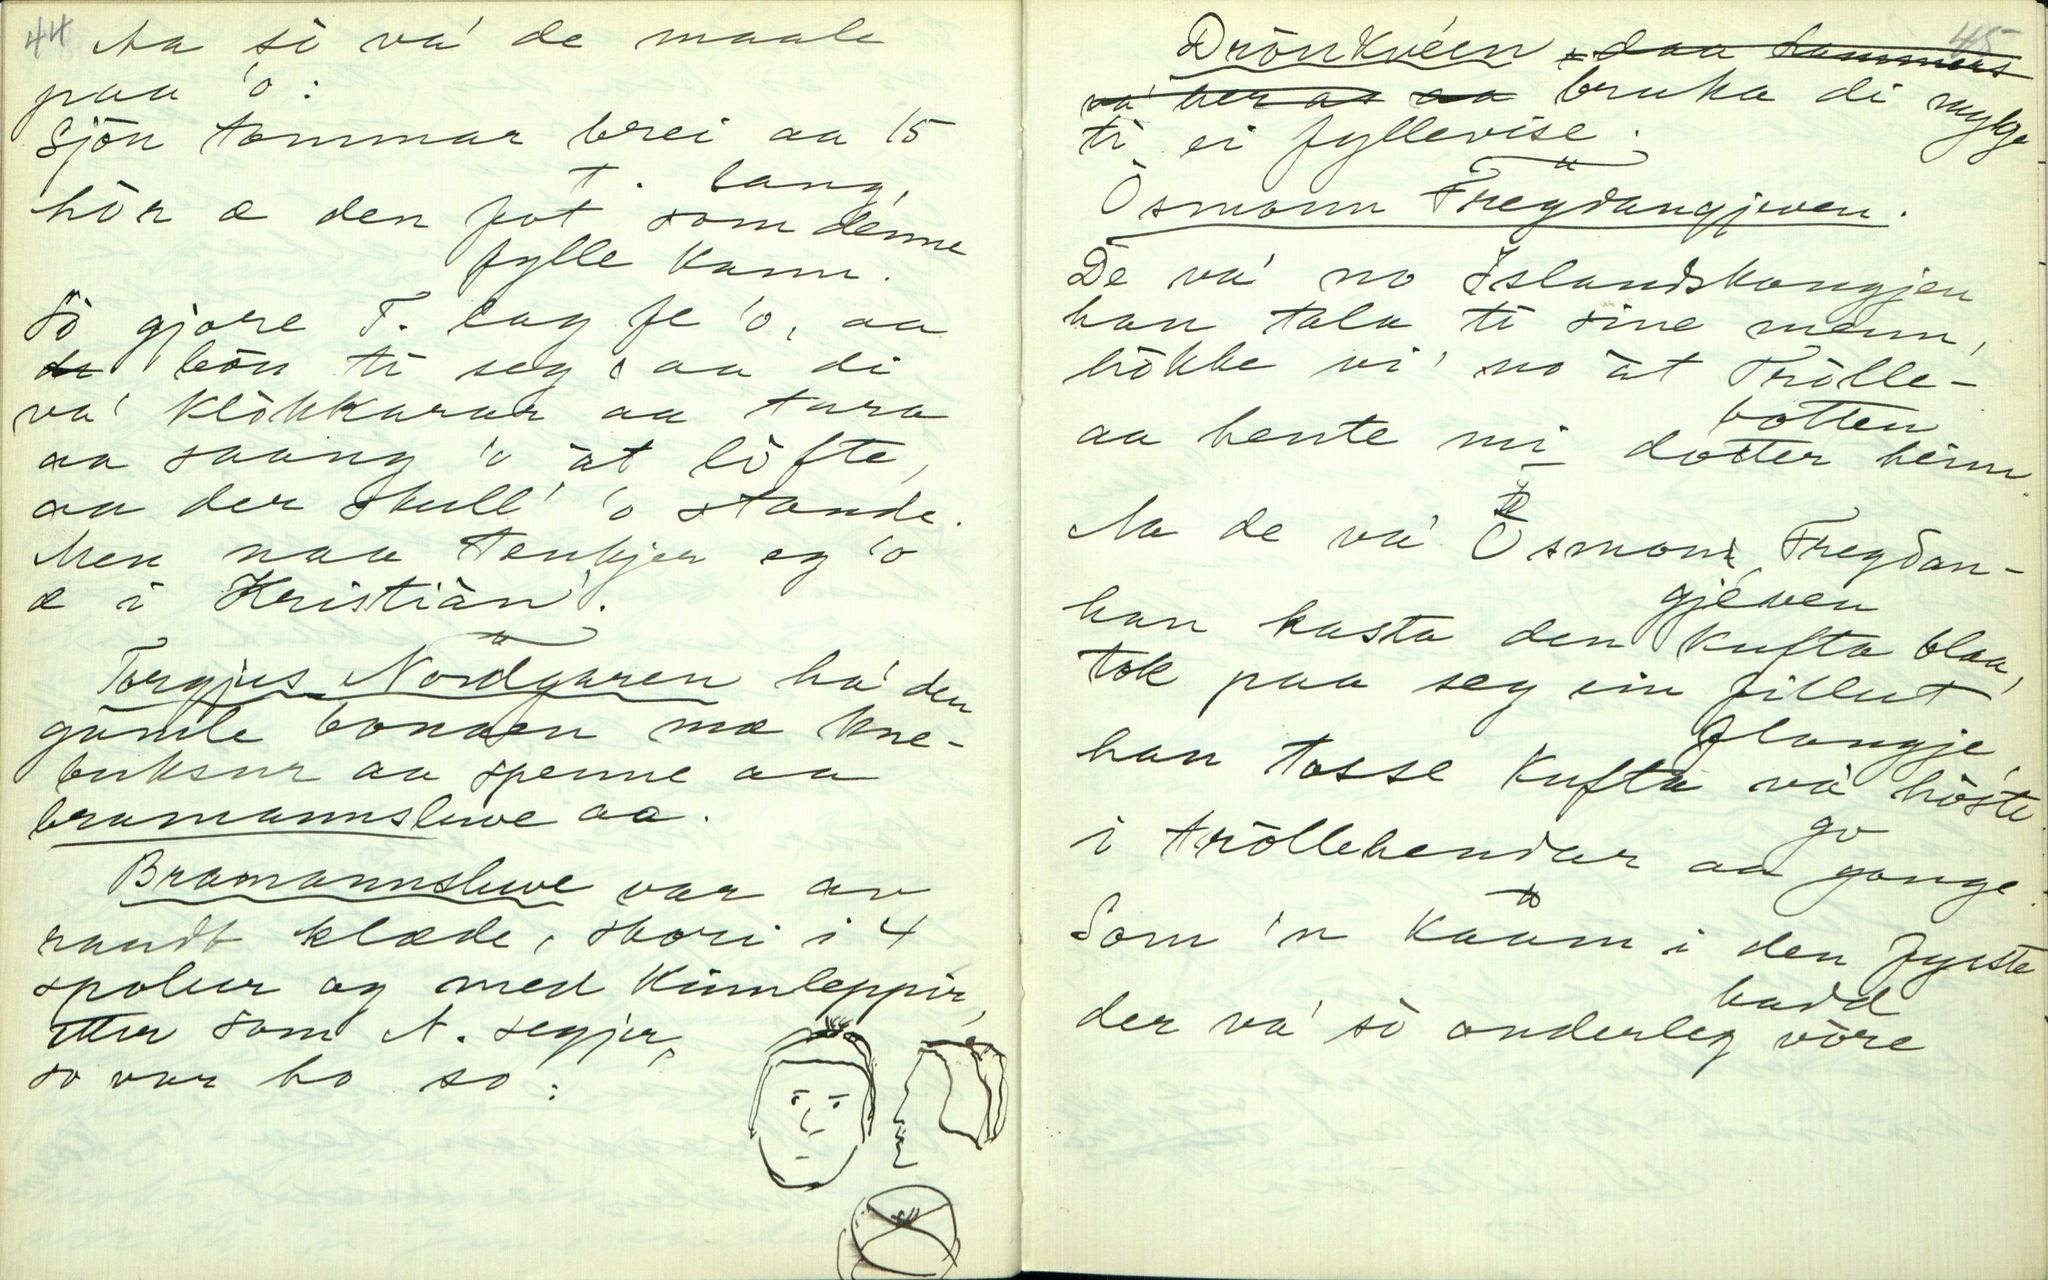 44
Aa sò va' de maale
paa 'o:
Sjön tommar brei aa 15
T. lang,
hör æ den fot som denne
fylle kann.
Sò gjore T. lag fe 'o, aa
bön ti seg, aa di
va' klökkarar aa tura
aa saang 'o àt löfte,
aa der skull' 'o stande.
Men naa tenkjer eg 'o
æ i Kristiàn'.
Torgjus Nordgaren ha' den
gamle bonaen mæ kne-
buksur aa spenne aa
bramannsluve aa.
Bramannsluve var av
raudt klæde, skori i 4
spolur og med kinnleppir,
etter som A. segjer,
so var ho so:
45
Drönkvéen, daa Lammers
va' her aa aa bruka di mykje
ti ei fyllevise.
Òsmann Fregdangjeven.
De va' no Islandskongjen
han tala ti sine menn,
hökke vi' no àt Trölle-
botten
aa hente mi dotter heim.
Aa de va' Òsmann Fregdan-
gjeven
han kasta den kufta blaa,
tok paa seg ein fillut
flangje,
han tosse kufta va' höste
go
i tröllehendar aa gange.
Som 'n kaam i den fyrste
hadd
der va' sò onderleg vöre